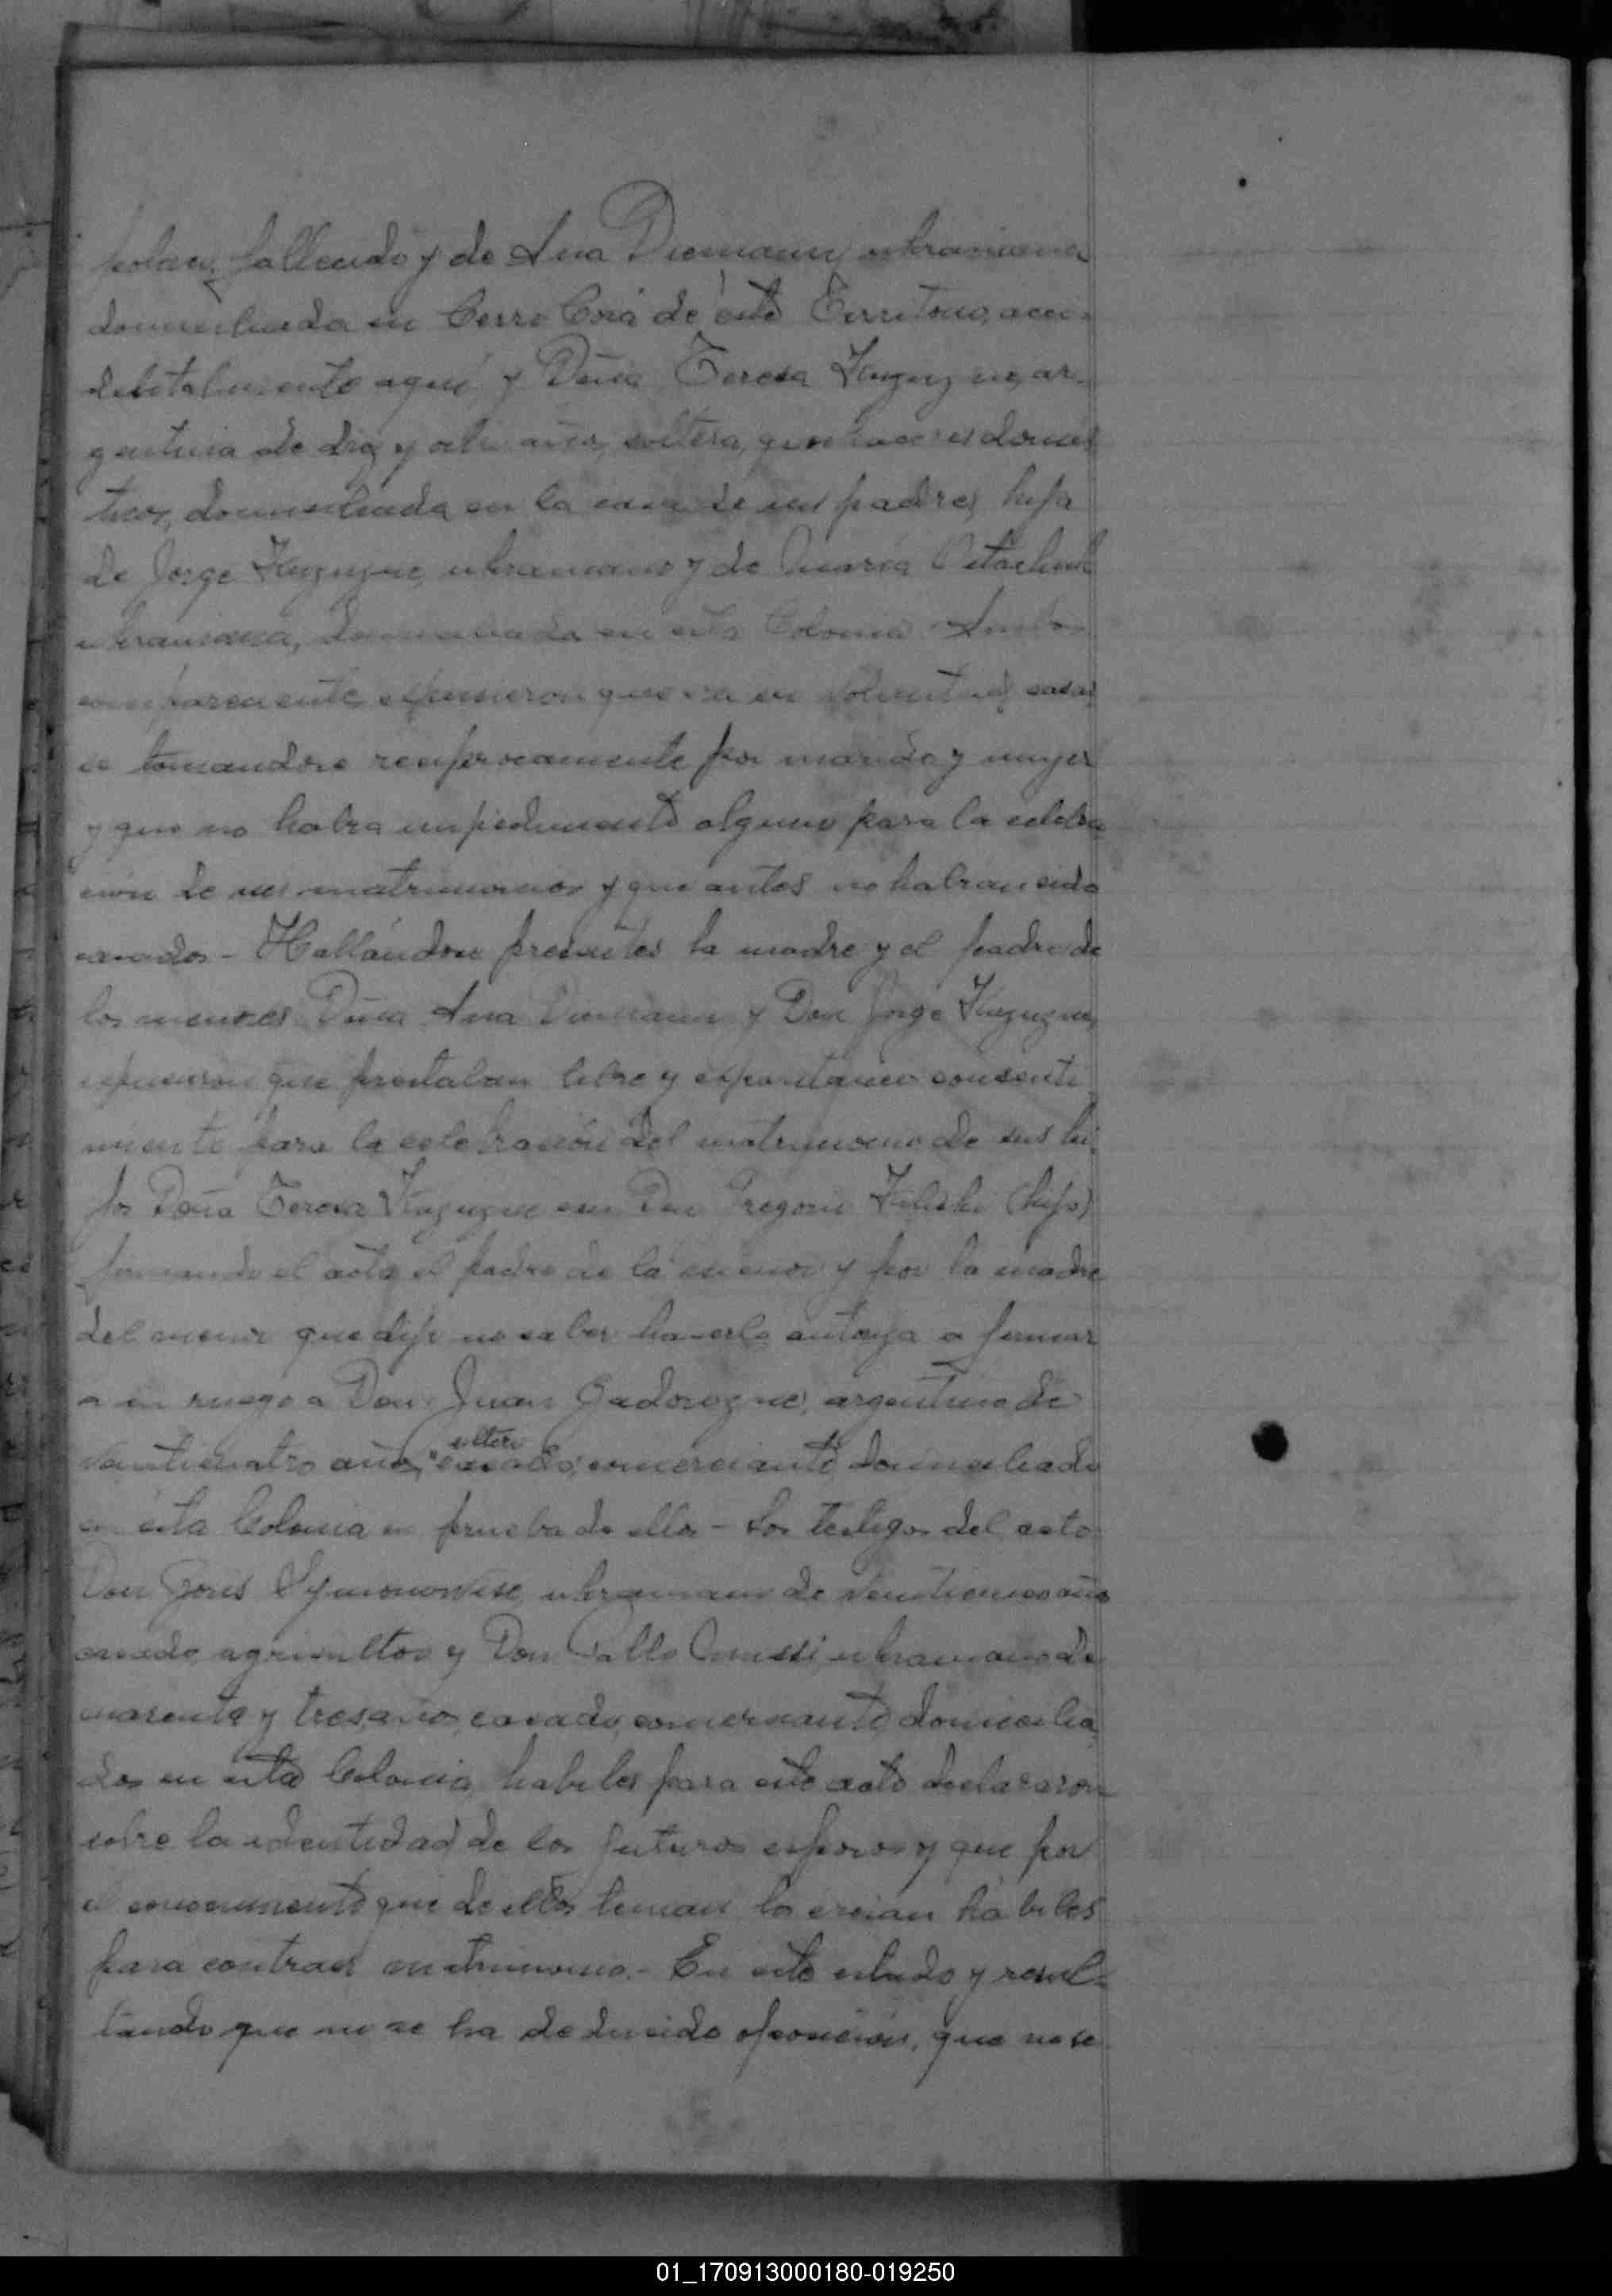 polaco, fallecido y de Ana Diemann, ukraniana
domiciliada en Cerro Corá de éste Territorio, acci-
dentalmente aquí, y Doña Teresa ar-
gentina de diez y ocho años, soltera, quehaceres domés
ticos, domiciliada en la casa de sus padres, hija
de Jorge ukraniano y de María
ukraniana, domiciliada en esta Colonia. Ambos
comparecientes expusieron que era su voluntad casar
se tomandose reciprocamente por marido y mujer
y que no habia impedimento alguno para la celebra
ción de su matrimonio y que antes no habian sido
casados - Hallándose presentes la madre y el padre de
los menores Doña Ana Diemann y Don Jorge
expusieron que prestaban libre y espontaneo consenti
miento para la celebración del matrimonio de sus hi
jos Doña Teresa con Don Gregorio (hijo)
firmando el acta el padre de la menor y por la madre
del menor que dijo no saber hacerlo autoriza a firmar
a su ruego a Don Juan argentino de
soltero
veinticuatro años, casado, comerciante domiciliado
en ésta Colonia en prueba de ello - Los testigos del acto
Don ukraniano de años
casado agricultor y Don Pablo ukraniano de
cuarenta y tres años, casado, comerciante, domicilia
dos en esta Colonia, habiles para este acto declararon
sobre la identidad de los futuros esposos y que por
el conocimiento que de ellos tenian los creian hábiles
para contraer matrimonio. - En este estado y resul-
tando que no se ha deducido oposición, que no se
01_170913000180-019250